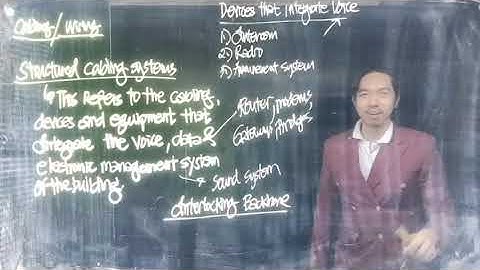 Cabling / Wiring
Structured Cabling Systems
This Refers to the cabling,
devices and equipment that
Integrate the voice, data &
electronic management system
of the building
Router, modems,
Gateways, Bridges
Sound System
Interlocking Backbone
Devices that Integrate Voice
1) Intercom
2) Radio
3) Announcement System